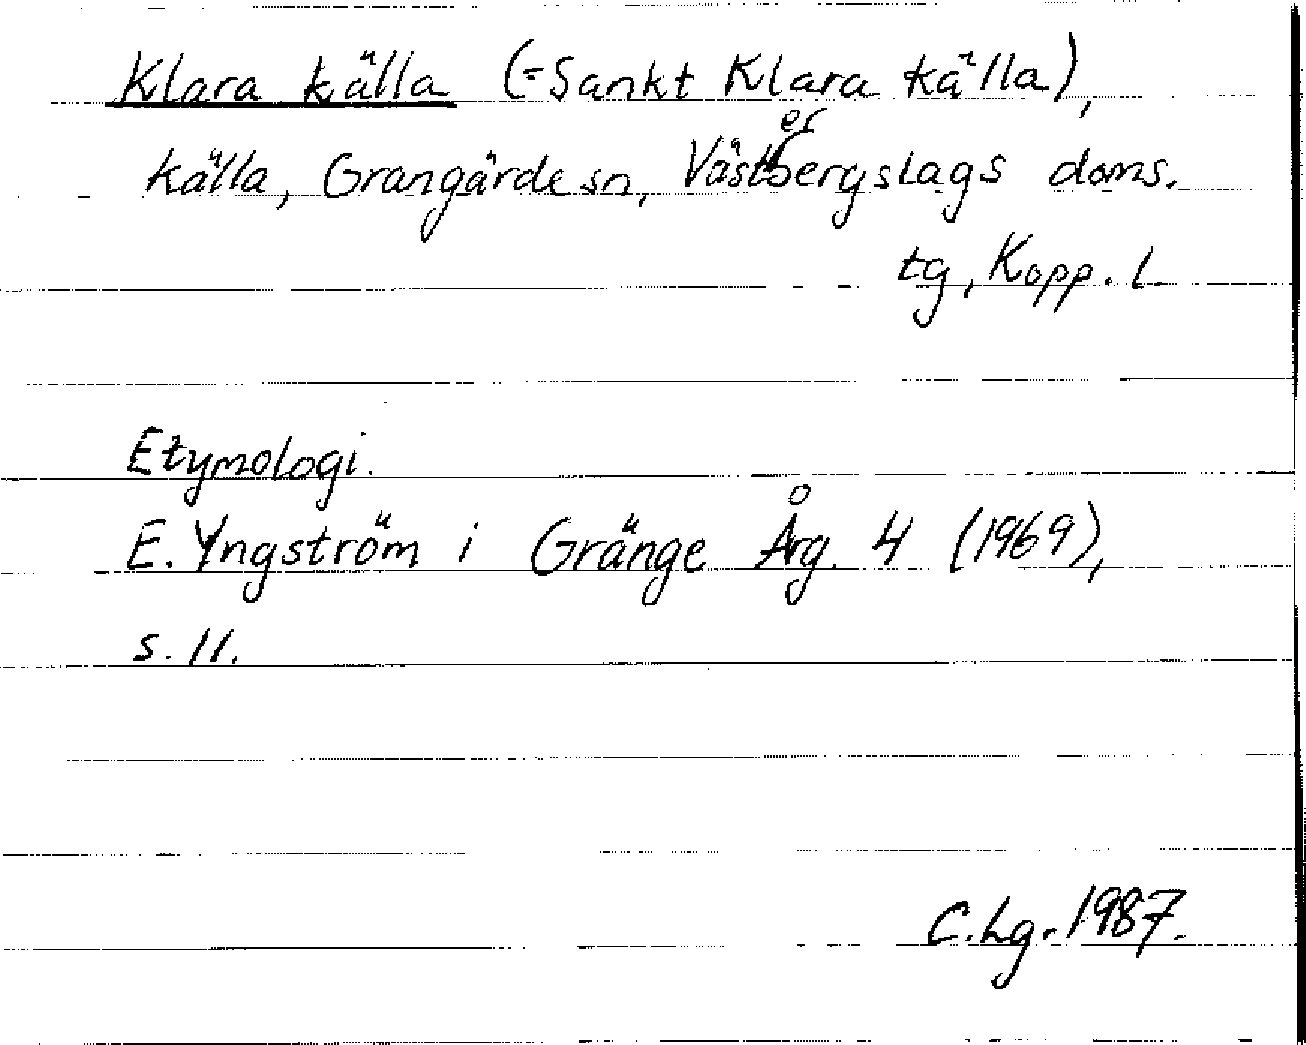 Klara källa (=Sankt Klara källa),
källa, Grangärde sn, Västerbergslags doms.
tg, Kopp. l.
Etymologi.
E. Yngström i Gränge Årg. 4 (1969),
s. 11.
C. Lg. 1987.